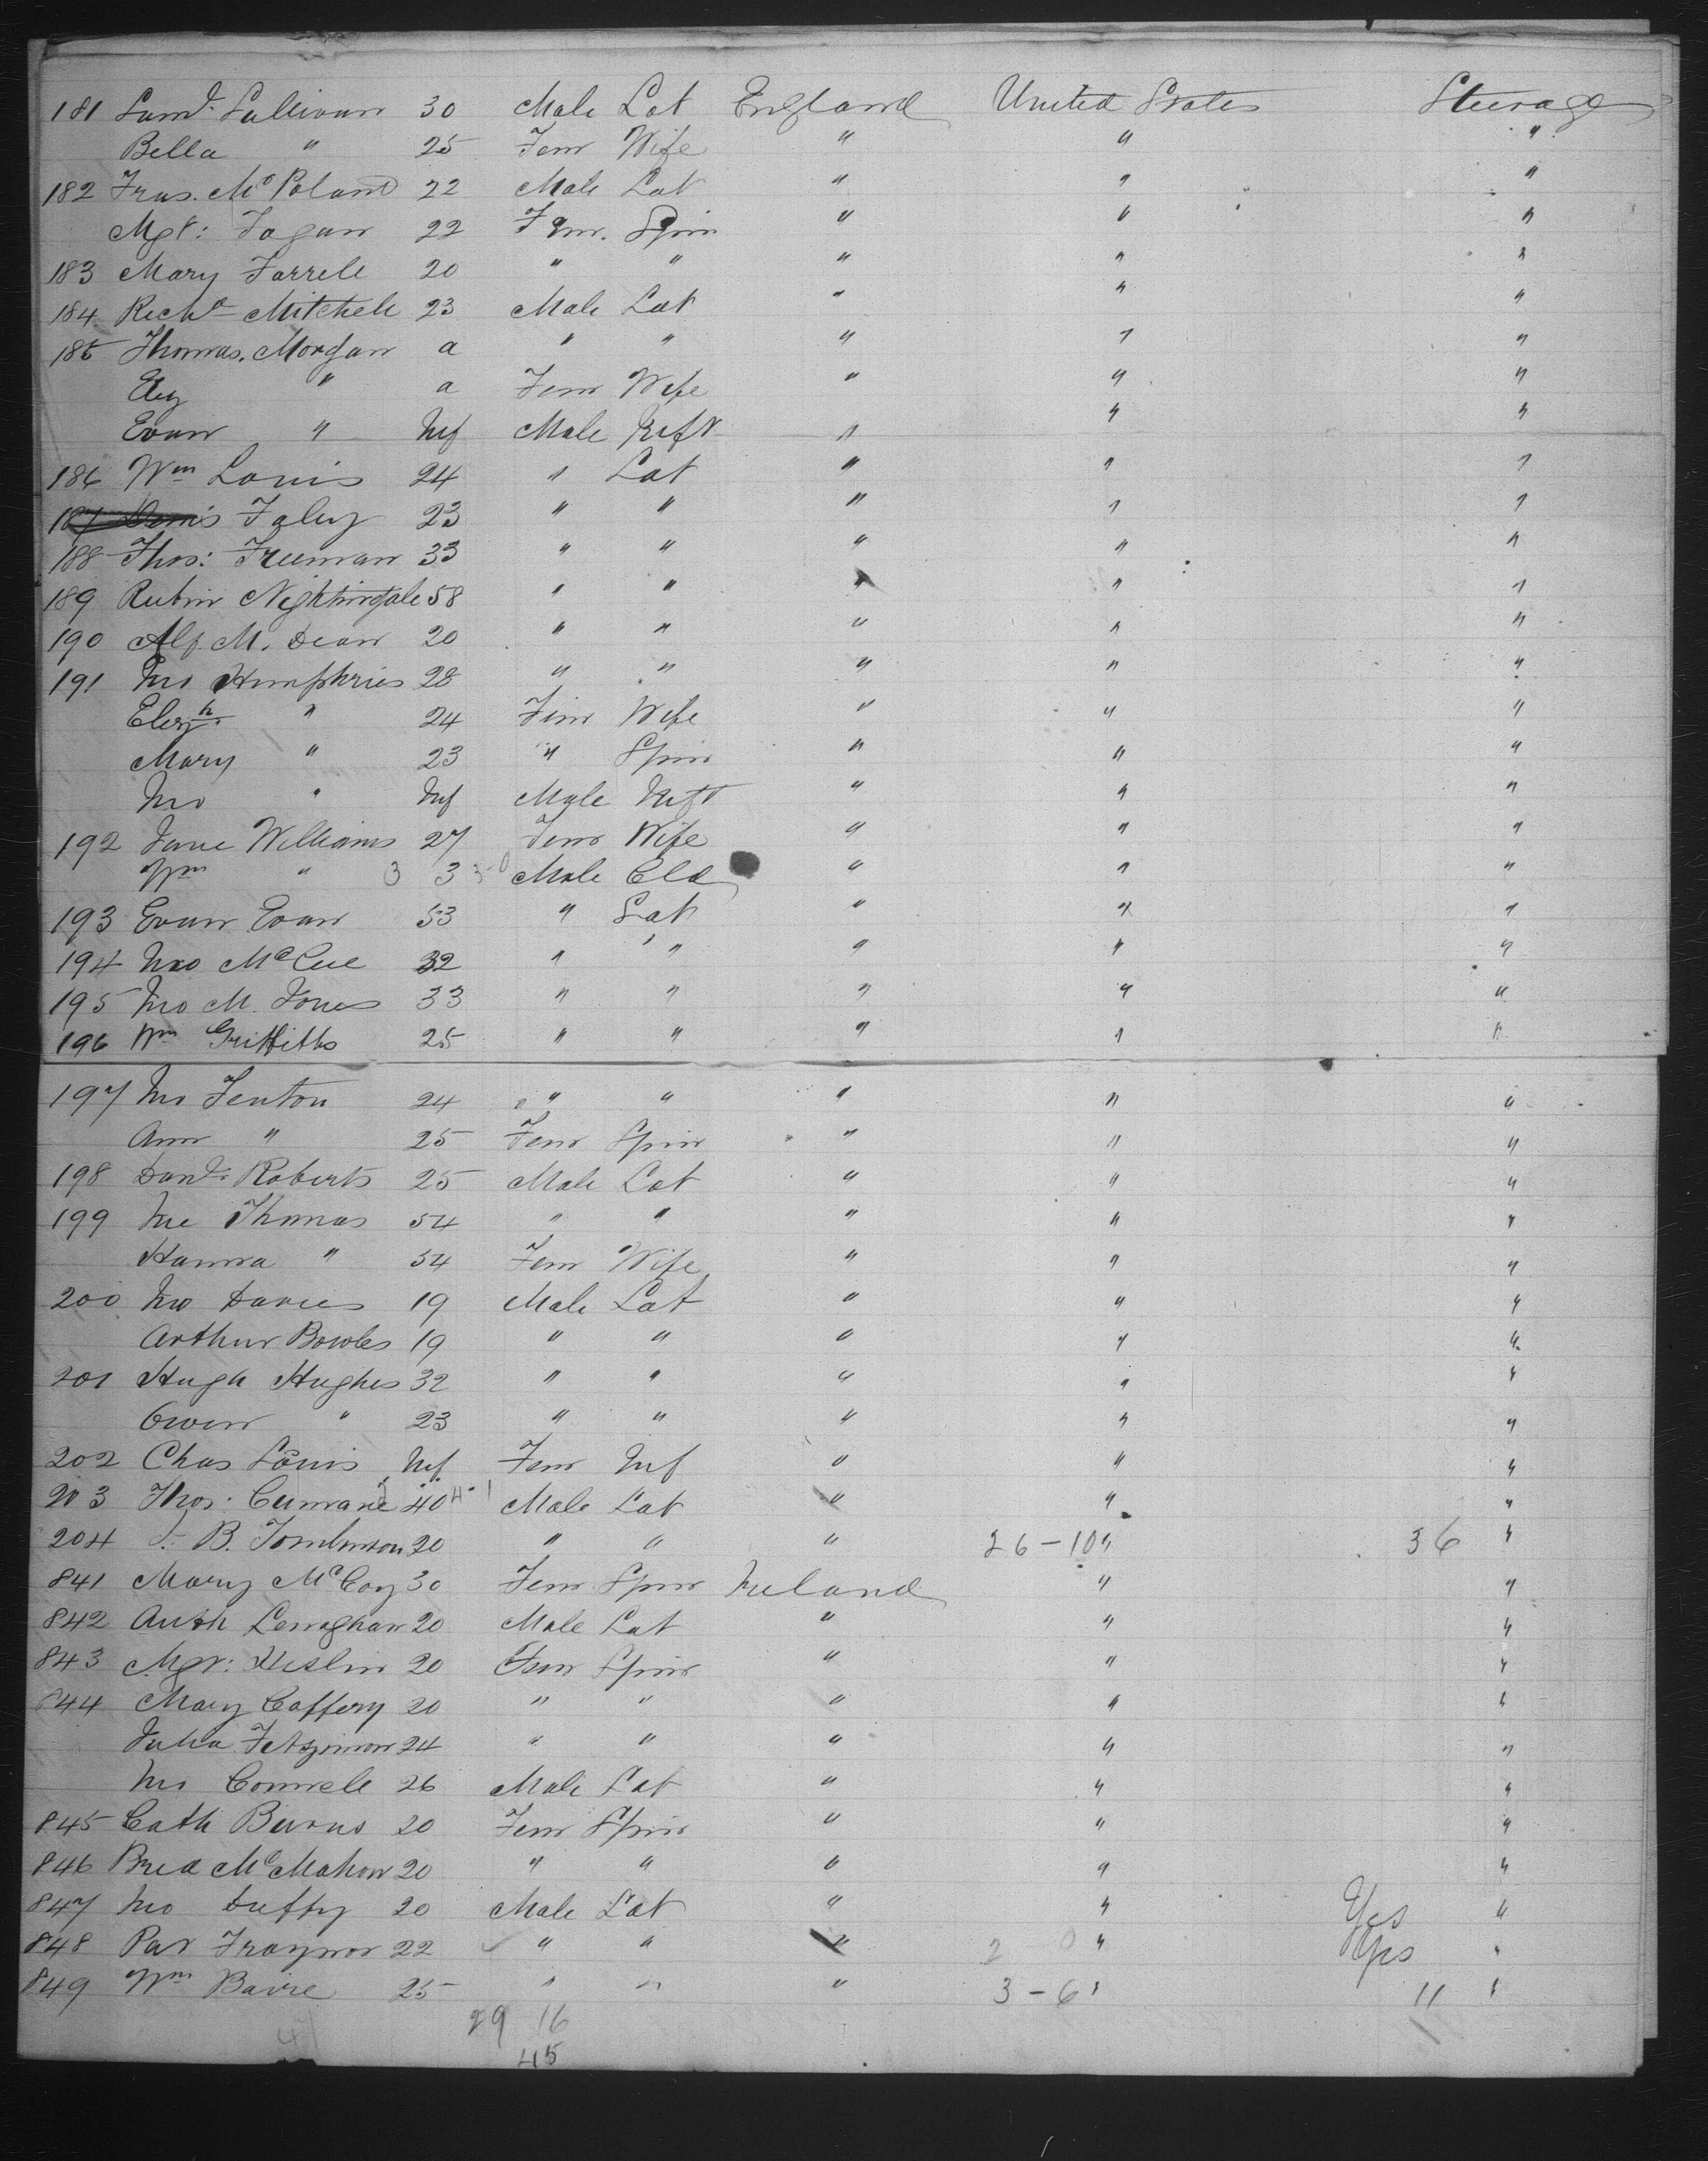 181 Saml. Sullivan 30 Male Lab England United States Steerage
Bella " 25 Fem Wife " " "
182 Fras. McPoland 22 Male Lab " " "
Mgt: Fagan 22 Fem. Spin " " "
183 Mary Farrell 20 " " " " "
184 Richd Mitchell 23 Male Lab " " "
185 Thomas. Morgan a " " " " "
Elez " a Fem Wife " " "
Evan " Inf Male Inft " " "
186 Wm Louis 24 " Lab " " "
187 Denis Foley 23 " " " " "
188 Thos: Freeman 33 " " " " "
189 Rubin Nightingale 58 " " " " "
190 Alf. M. Dean 20 " " " " "
191 Jno Humphries 28 " " " " "
Elezh. " 24 Fem Wife " " "
Mary " 23 " Spin " " "
Jno " Inf Male Inft " " "
192 Jane Williams 27 Fem Wife " " "
Wm " 3 3 Male Cld " " "
193 Evan Evan 53 " Lab " " "
194 Jno McCue 32 " " " " "
195 Jno M. Jones 33 " " " " "
196 Wm Griffiths 25 " " " " "
197 Jno Fenton 24 " " " " "
Ann " 25 Fem Spin " " "
198 Danl. Roberts 25 Male Lab " " "
199 Jne Thomas 54 " " " " "
Hanna " 54 Fem Wife " " "
200 Jno Davies 19 Male Lab " " "
Arthur Bowles 19 " " " " "
201 Hugh Hughes 32 " " " " "
Owen " 23 " " " " "
202 Chas Louis Inf Fem Inf " " "
203 Thos. 40 Male Lab " " "
204 B. Tomlinson 20 " " " 26-10 " 36 "
841 Mary McCoy 30 Fem Spin Ireland " "
842 Anth Lenaghan 20 Male Lab " " "
843 Mgt: Heslin 20 Fem Spin " " "
844 Mary Caffery 20 " " " " "
Julia Fitzsimon 24 " " " " "
Jno Connell 26 Male Lab " " "
845 Cath Burns 20 Fem Spin " " "
846 Brid McMahon 20 " " " " "
847 Jno Duffy 20 Male Lab " " Yes "
848 Pat Traynor 22 " " " " Yes "
849 Wm Barre 25 " " " 3-6 " 11 "
29 16
45